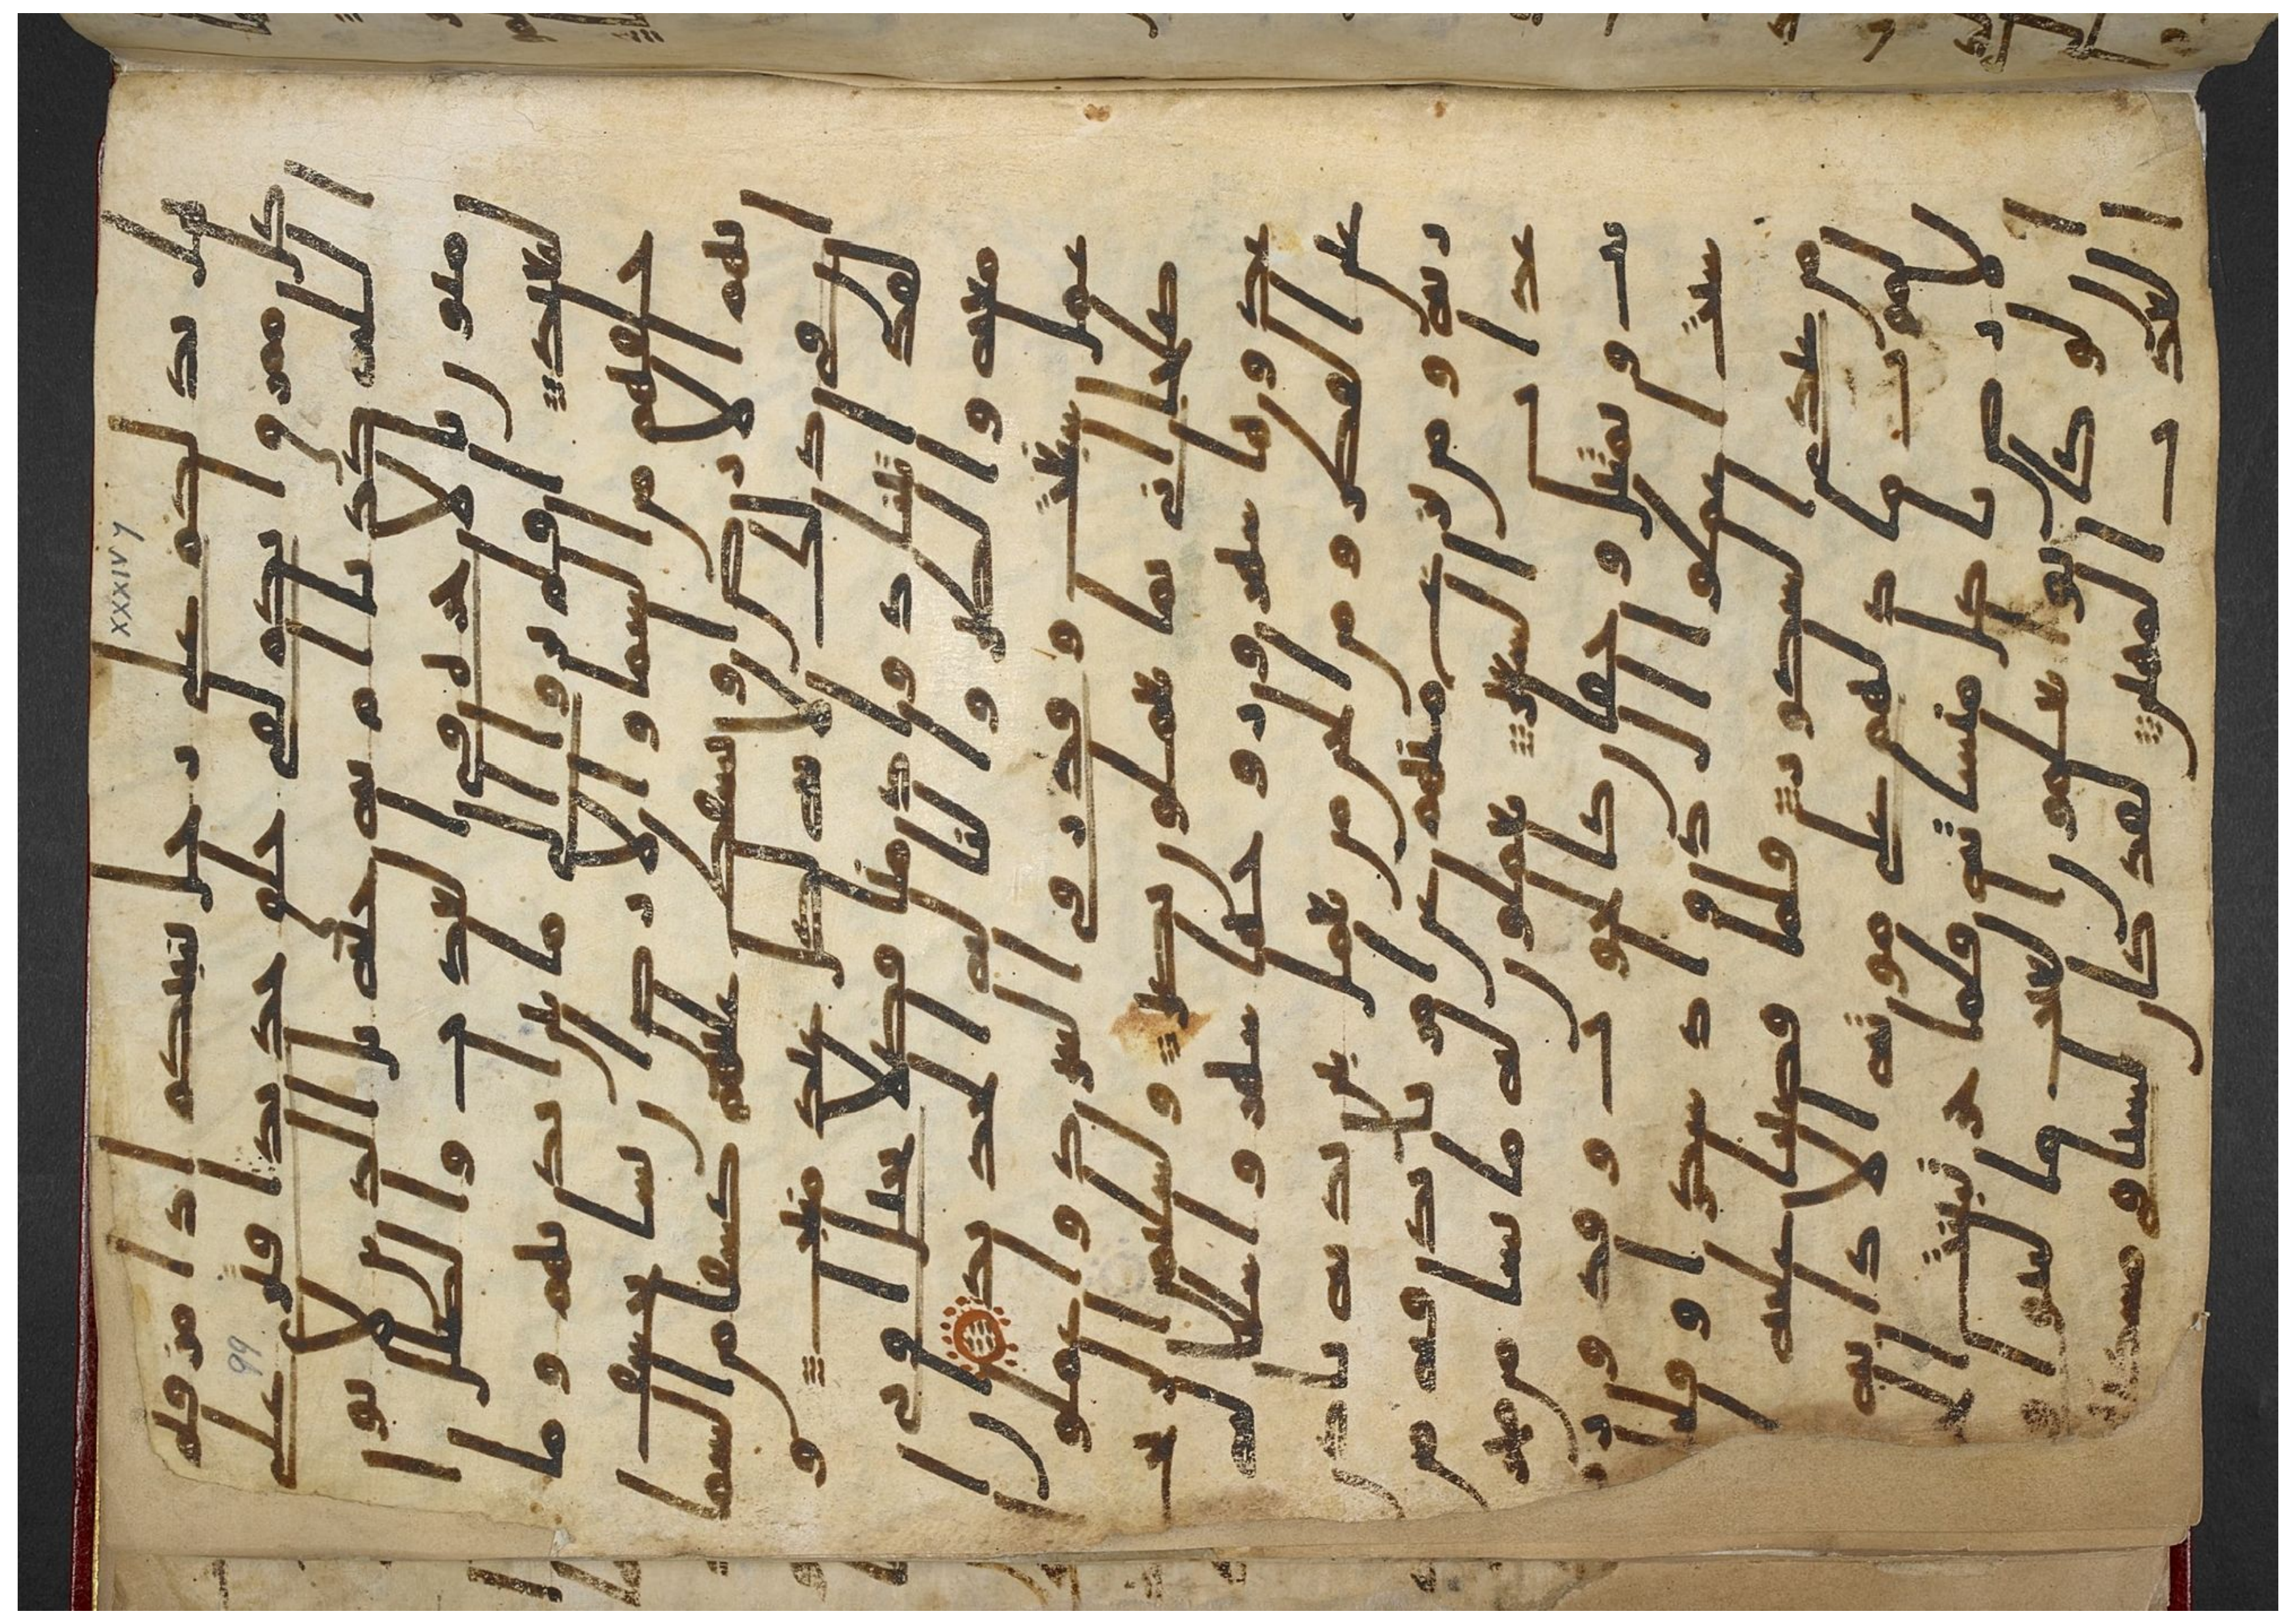 هل ندلكم على رجل ينبئكم اذا مزقتم
كل ممزق انكم لفى خلق جديد افترى على
الله كذبا ام به جنه بل الذين لا يو
منون بالاخره فى العذاب والضلل ا
لبعيد افلم يروا الى ما بين ايديهم وما
خلفهم من السما والارض ان نشا نخسف
بهم الارض او نسقط عليهم كسفا من السما
ان فى ذلك لايه لكل عبد منيب و
لقد اتينا داود منا فضلا يجبال اوبى
معه والطير والنا له الحديد ان ا
عمل سبغت وقدر فى السرد وا
عملوا صلحا انى بما تعملون بصير ولسليمن الر
يح غدوها شهر ورواحها شهر واسلنا له
عين القطر ومن الجن من يعمل بين يديه باذن ر
به ومن يزغ منهم عن امرنا نذقه من
عذاب السعير يعملون له ما يشا من محر
يب وتمثيل وجفان كالجواب وقدور ر
سيت اعملوا ال داود شكرا وقليل
من عبادى الشكور فلما قضينا عليه
الموت ما دلهم على موته الا دابه
الارض تاكل منساته فلما خر تبينت الجن
ان لو كانوا يعلمون الغيب ما لبثوا فى
العذاب المهين لقد كان لسبا فى مسكنهم
XXXIV 7
99